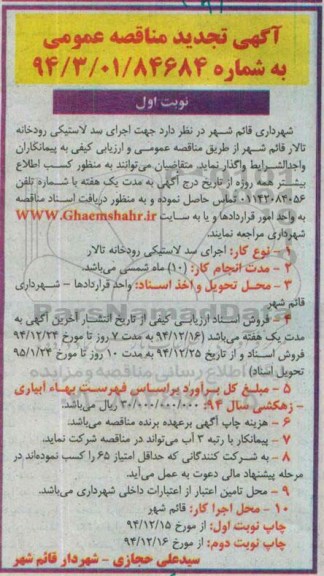 آگهی تجدید مناقصه عمومی
به شماره ۹۴/۳/۰۱/۸۴۶۸۴
نوبت اول
شهرداری قائم شهر در نظر دارد جهت اجرای سد لاستیکی رودخانه
تالار قائم شهر از طریق مناقصه عمومی و ارزیابی کیفی به پیمانکاران
واجدالشرایط واگذار نماید. متقاضیان می‌توانند به منظور کسب اطلاع
بیشتر همه روزه از تاریخ درج آگهی به مدت یک هفته با شماره تلفن
۰۱۱۴۲۰۸۴۰۵۶ تماس حاصل نموده و به منظور دریافت اسناد مناقصه
به واحد امور قراردادها و یا به سایت WWW.Ghaemshahr.ir
شهرداری مراجعه نمایند.
۱ - نوع کار: اجرای سد لاستیکی رودخانه تالار
۲ - مدت انجام کار: (۱۰) ماه شمسی می‌باشد.
۳ - محل تحویل و اخذ اسناد: واحد قراردادها - شهرداری
قائم شهر
۴ - فروش اسناد ارزیابی کیفی از تاریخ انتشار آخرین آگهی به
مدت یک هفته می‌باشد (۹۴/۱۲/۱۶ به مدت ۷ روز تا مورخ ۹۴/۱۲/۲۴
فروش اسناد و از تاریخ ۹۴/۱۲/۲۵ به مدت ۱۰ روز تا مورخ ۹۵/۱/۲۴
تحویل اسناد)
۵ - مبلغ کل برآورد براساس فهرست بهاء آبیاری
- زهکشی سال ۹۴: ۳۰/۰۰۰/۰۰۰/۰۰۰ ریال می‌باشد.
۶ - هزینه چاپ آگهی برعهده برنده مناقصه می‌باشد.
۷ - پیمانکار با رتبه ۳ آب می‌تواند در مناقصه شرکت نماید.
۸ - به شرکت کنندگانی که حداقل امتیاز ۶۵ را کسب نموده‌اند در
مرحله پیشنهاد مالی دعوت به عمل می‌آید.
۹ - محل تامین اعتبار از اعتبارات داخلی شهرداری می‌باشد.
۱۰ - محل اجرا کار: قائم شهر
چاپ نوبت اول: از مورخ ۹۴/۱۲/۱۵
چاپ نوبت دوم: از مورخ ۹۴/۱۲/۱۶
سیدعلی حجازی - شهردار قائم شهر